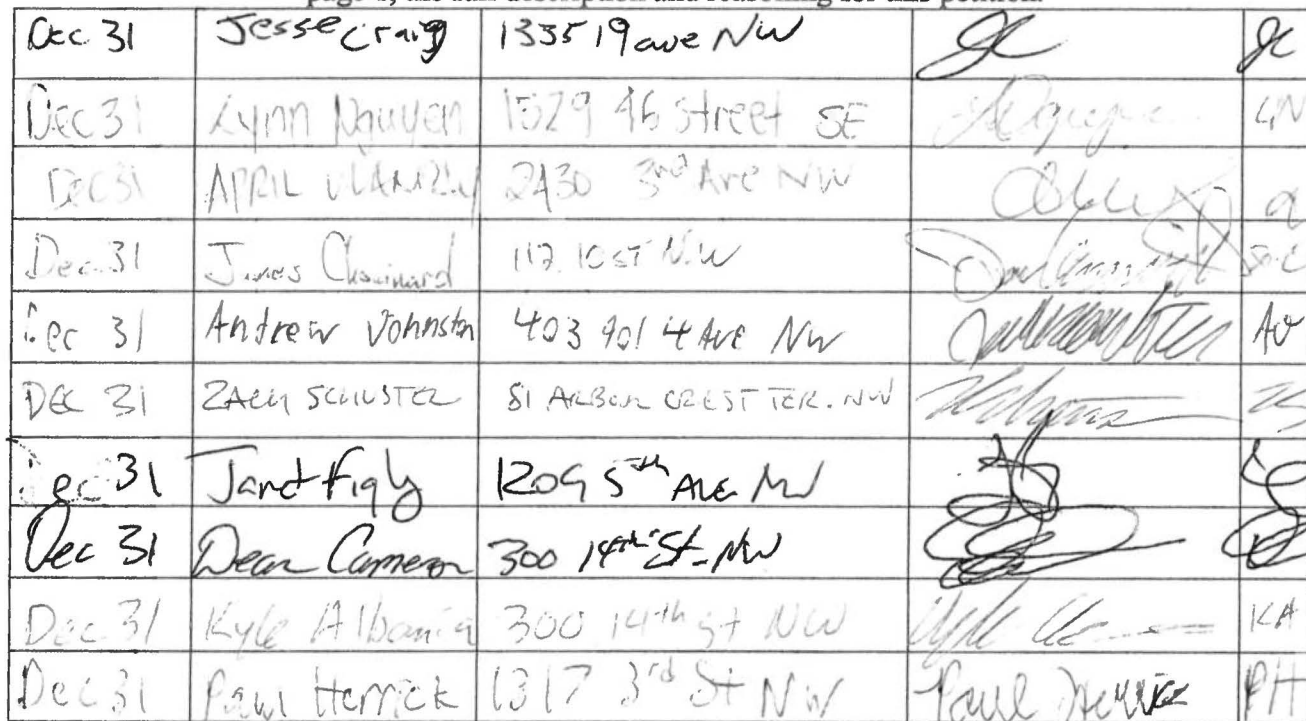 page 1, the full description and reasoning for this petition.
Dec 31 Jesse Craig 1335 19 ave NW JC
Dec 31 Lynn Nguyen 1529 46 Street SE LN
Dec 31 APRIL 2430 3rd Ave NW
Dec 31 James 112 10 ST NW
Dec 31 Andrew Johnston 403 901 4 Ave NW
DEC 31 ZACH SCHUSTER 81 ARBOUR CREST TER. NW
Dec 31 Janet Figly 1209 5th Ave NW
Dec 31 Dean Cameron 300 14th St. NW
Dec 31 Kyle 300 14th St NW KA
Dec 31 Paul Herrick 1317 3rd St NW Paul Herrick PH